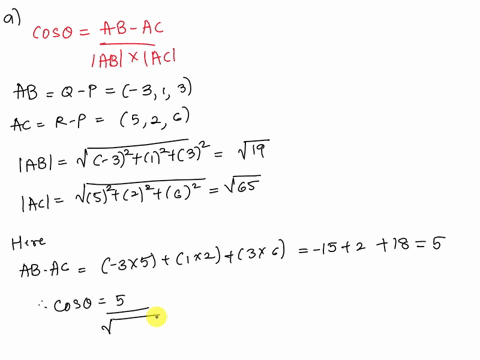 a)
COSθ = AB-AC
|AB| × |AC|
AB = Q-P = (-3, 1, 3)
AC = R-P = (5, 2, 6)
|AB| = √(-3)²+(1)²+(3)² = √19
|AC| = √(5)²+(2)²+(6)² = √65
Here
AB-AC = (-3×5) + (1×2) + (3×6) = -15+2 +18 = 5
∴ COSθ = 5
√